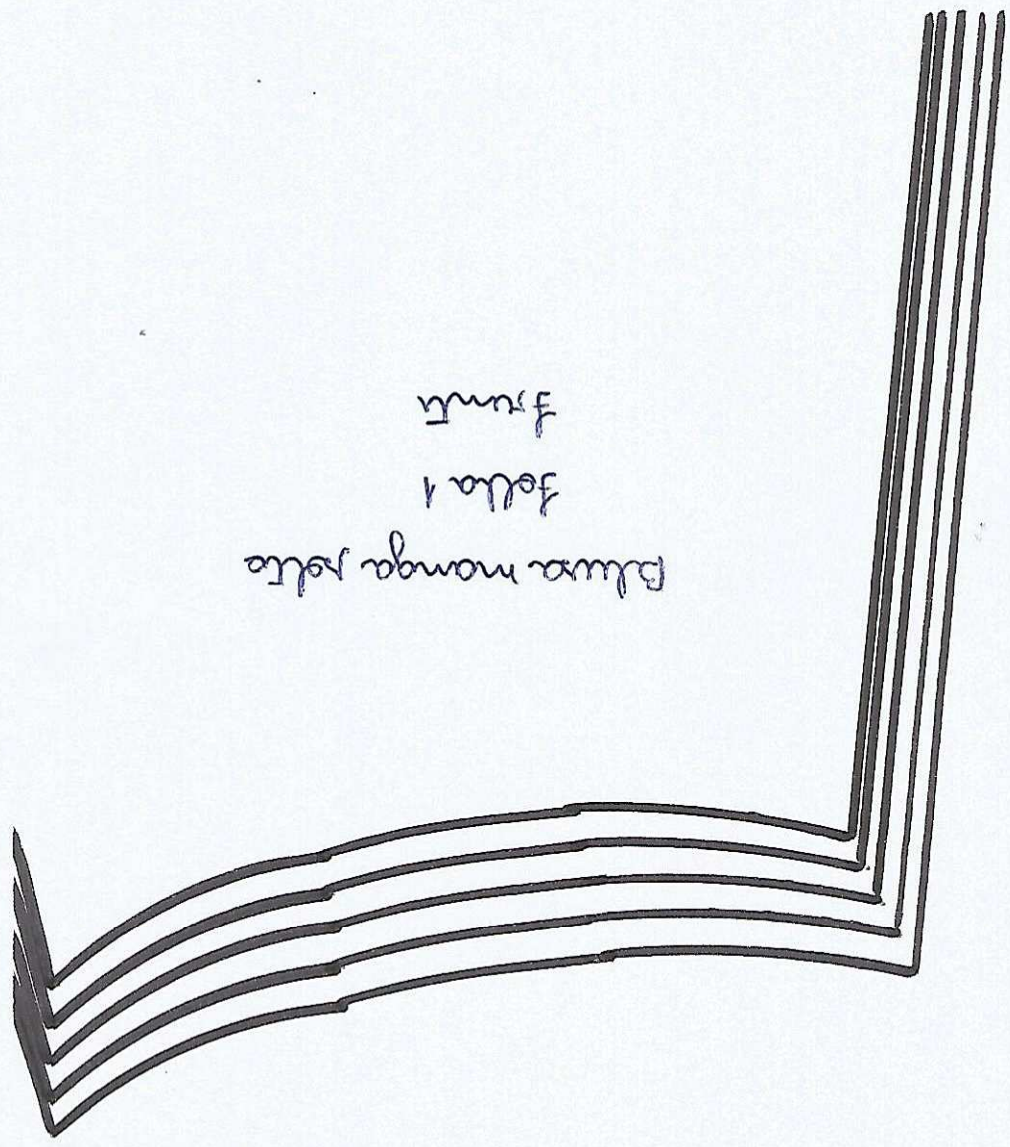 Blusa manga solta
Folha 1
Frente